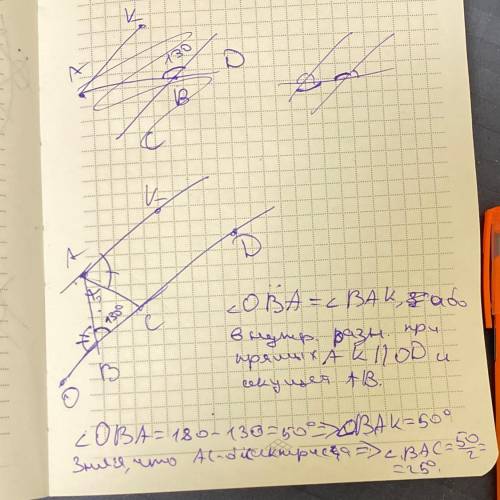 K
A
130
D
B
C
K
A
D
C
130
B
O
∠OBA = ∠BAK,
внутр. разн. при
прямых AK || OD и
секущей AB.
∠OBA = 180 - 130 = 50° => ∠BAK = 50°
Зная, что AC - биссектриса => ∠BAC = 50/2 =
= 25°.